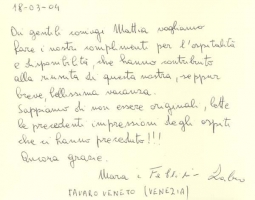 18-03-04
Ai gentili coniugi Mattia vogliamo
fare i nostri complimenti per l'ospitalità
e disponibilità, che hanno contribuito
alla riuscita di questa nostra, seppur
breve, bellissima vacanza.
Sappiamo di non essere originali, lette
le precedenti impressioni degli ospiti
che ci hanno preceduto!!!
Ancora grazie.
Mara e
FAVARO VENETO (VENEZIA)